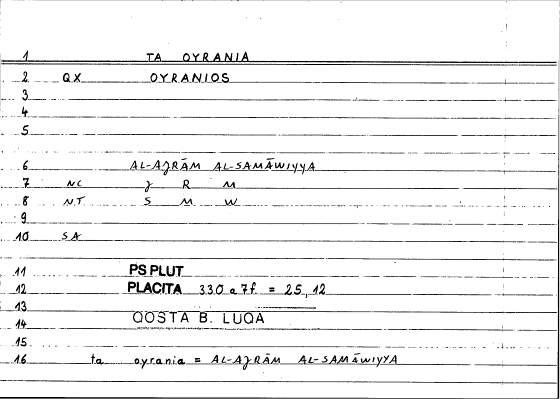 1 TA OYRANIA
2 QX OYRANIOS
3
4
5
6 AL-AȷRĀM AL-SAMĀWIYYA
7 NC ȷ R M
8 NT S M W
9
10 SA
11 PS PLUT
12 PLACITA 330 a 7f. = 25, 12
13
14 QOSTA B. LUQA
15
16 ta oyrania = AL-AȷRĀM AL-SAMĀWIYYA